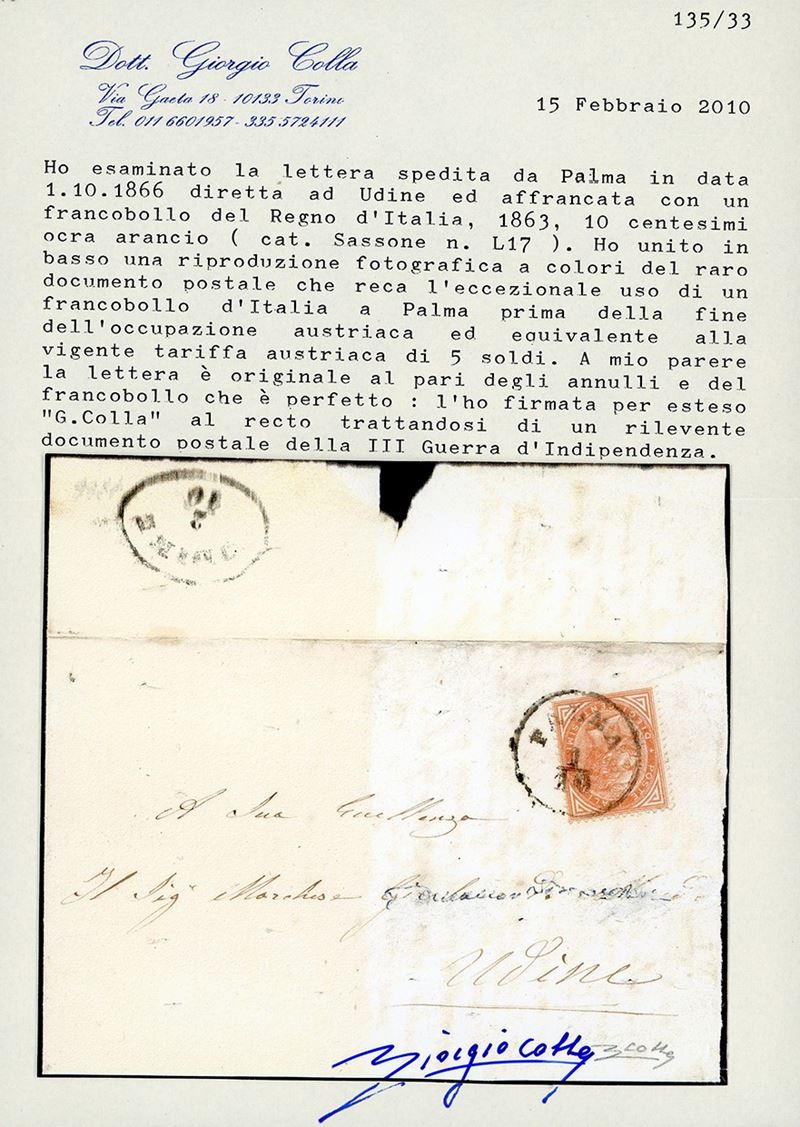 135/33
Dott. Giorgio Colla
Via Gaeta 18 - 10133 Torino
Tel. 011 6601957 - 335 5724111
15 Febbraio 2010
Ho esaminato la lettera spedita da Palma in data
1.10.1866 diretta ad Udine ed affrancata con un
francobollo del Regno d'Italia, 1863, 10 centesimi
ocra arancio ( cat. Sassone n. L17 ). Ho unito in
basso una riproduzione fotografica a colori del raro
documento postale che reca l'eccezionale uso di un
francobollo d'Italia a Palma prima della fine
dell'occupazione austriaca ed equivalente alla
vigente tariffa austriaca di 5 soldi. A mio parere
la lettera è originale al pari degli annulli e del
francobollo che è perfetto : l'ho firmata per esteso
"G.Colla" al recto trattandosi di un rilevente
documento postale della III Guerra d'Indipendenza.
UDINE
2
10
PALMA
1
10
A Sua Eccellenza
Il Sigr Marchese
Udine
Giorgio Colla
G Colla